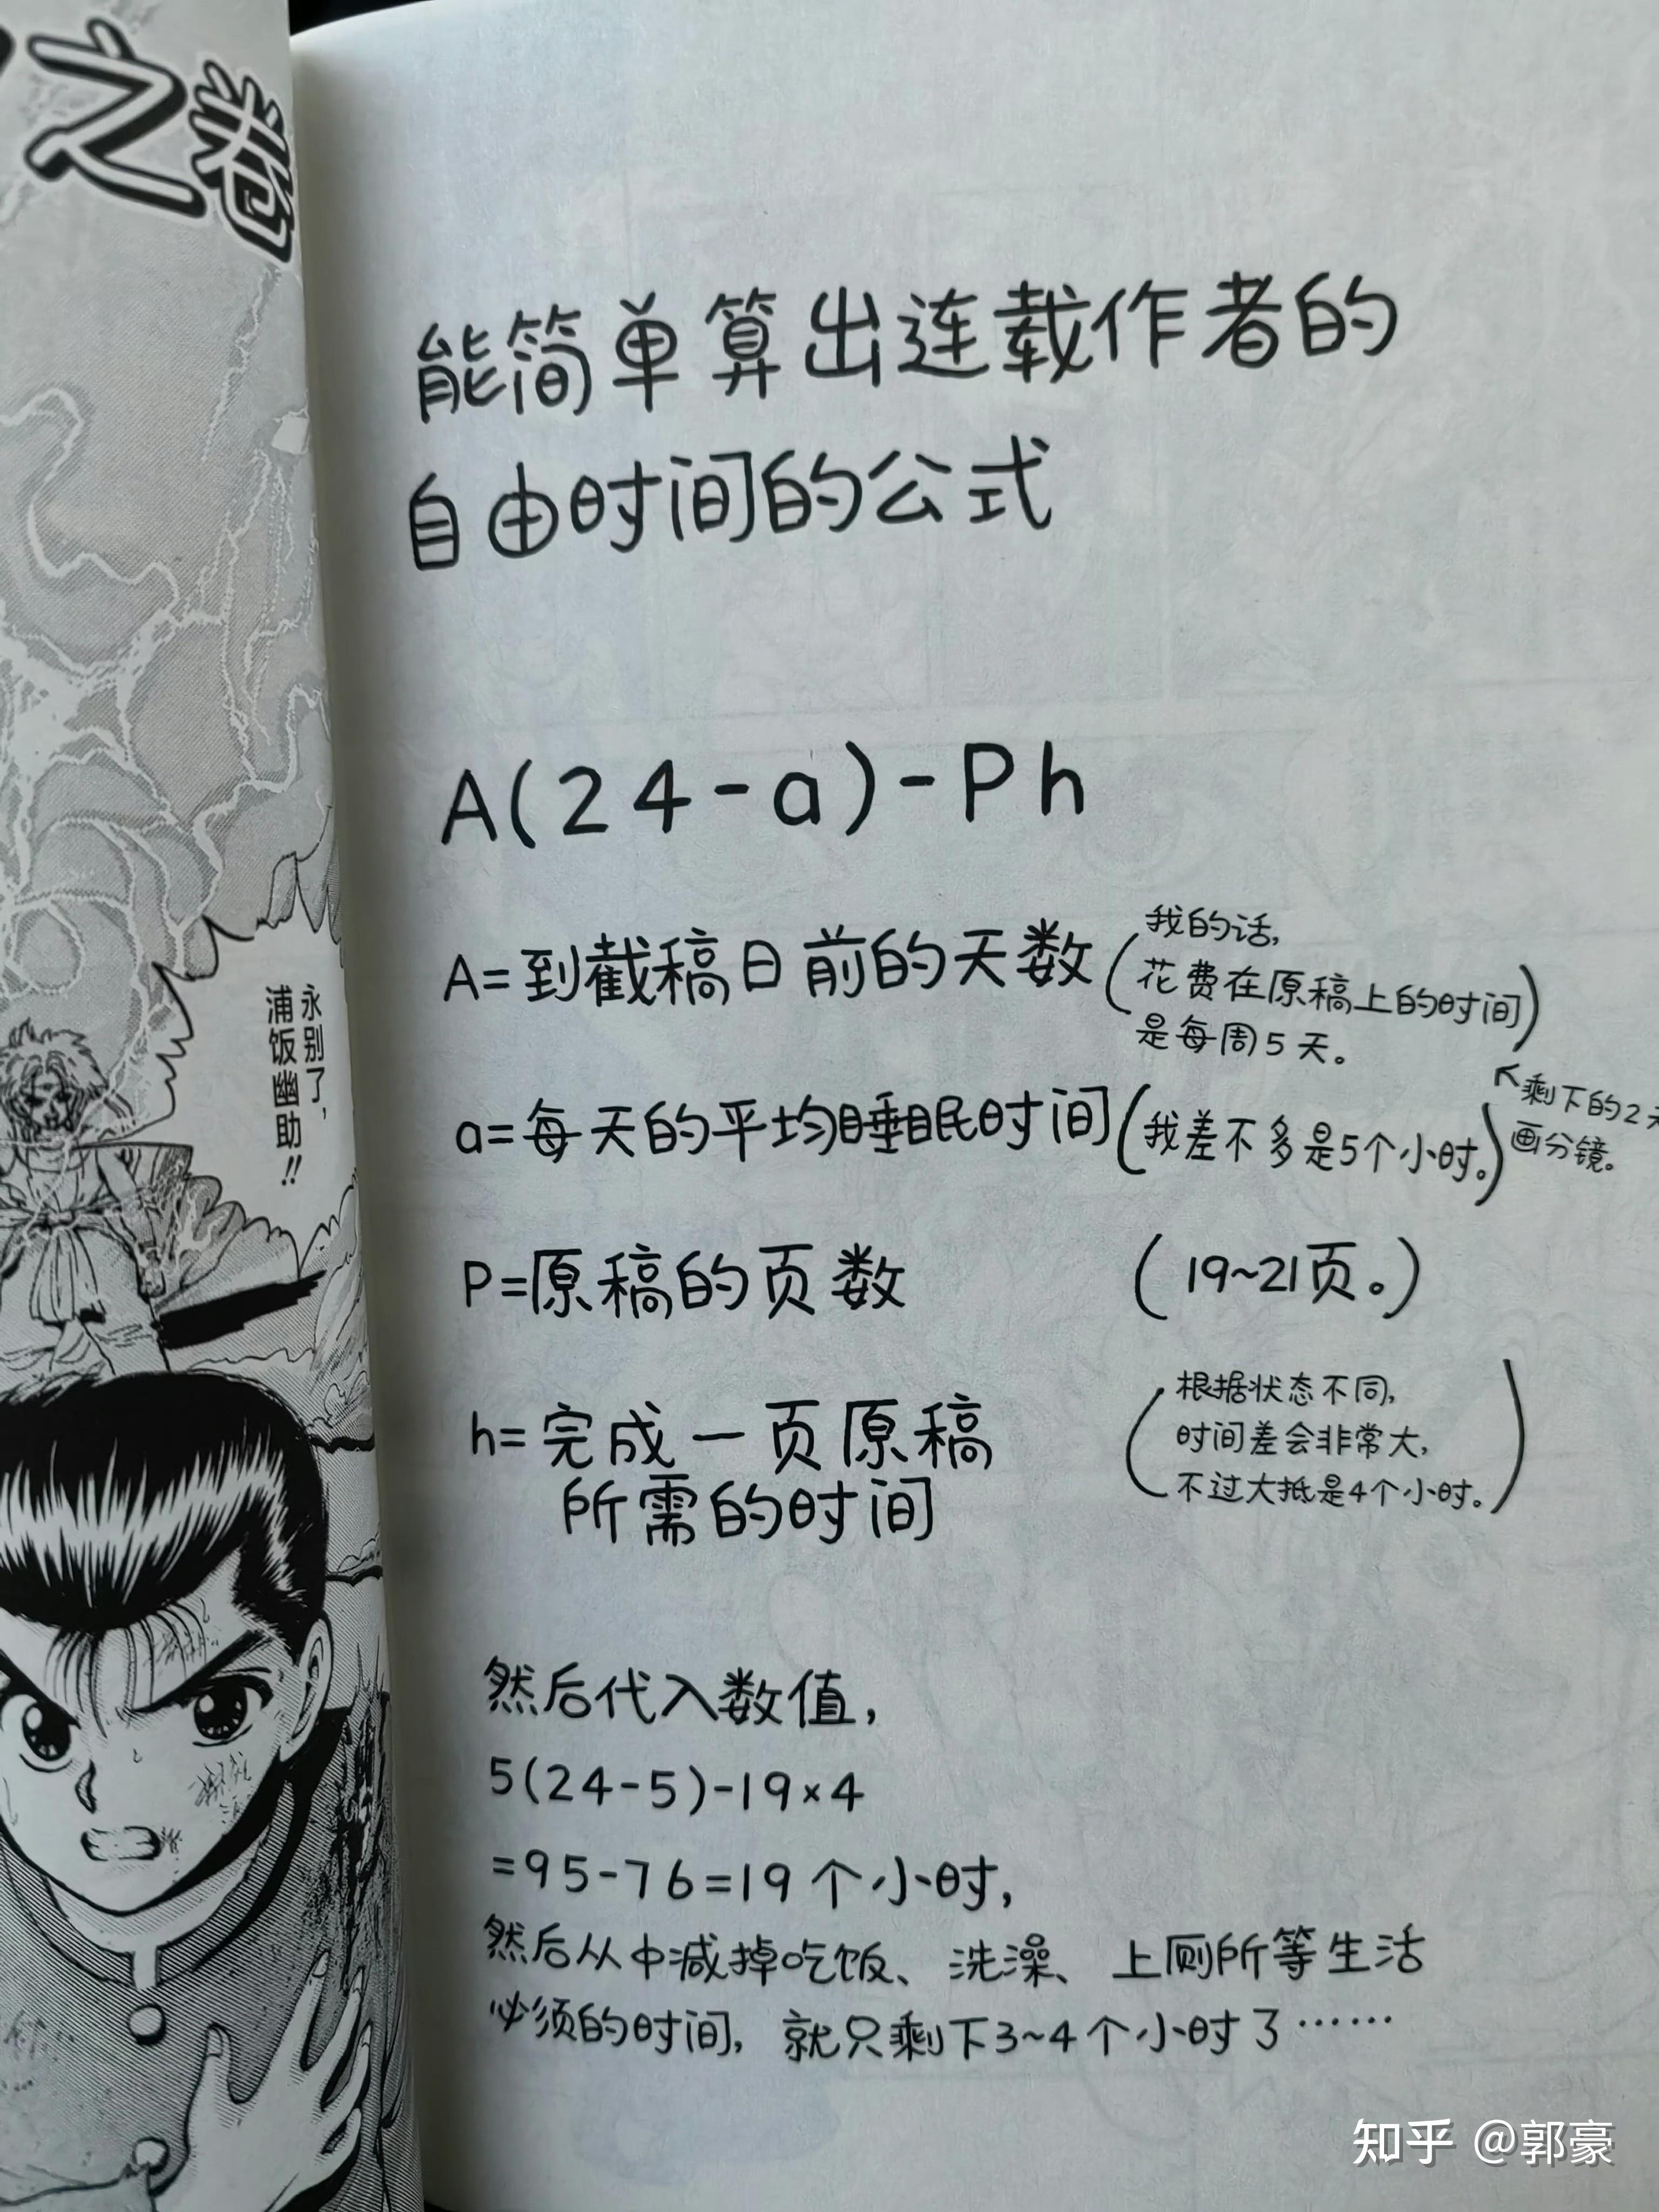 之卷
永别了，
浦饭幽助!!
能简单算出连载作者的
自由时间的公式
A(24-a)-Ph
A=到截稿日前的天数(我的话,
花费在原稿上的时间
是每周5天。)
↖剩下的2天
画分镜。
a=每天的平均睡眠时间(我差不多是5个小时。)
P=原稿的页数 (19~21页。)
h=完成一页原稿
所需的时间
(根据状态不同,
时间差会非常大,
不过大抵是4个小时。)
然后代入数值,
5(24-5)-19×4
=95-76=19个小时,
然后从中减掉吃饭、洗澡、上厕所等生活
必须的时间, 就只剩下3~4个小时了……
知乎 @郭豪